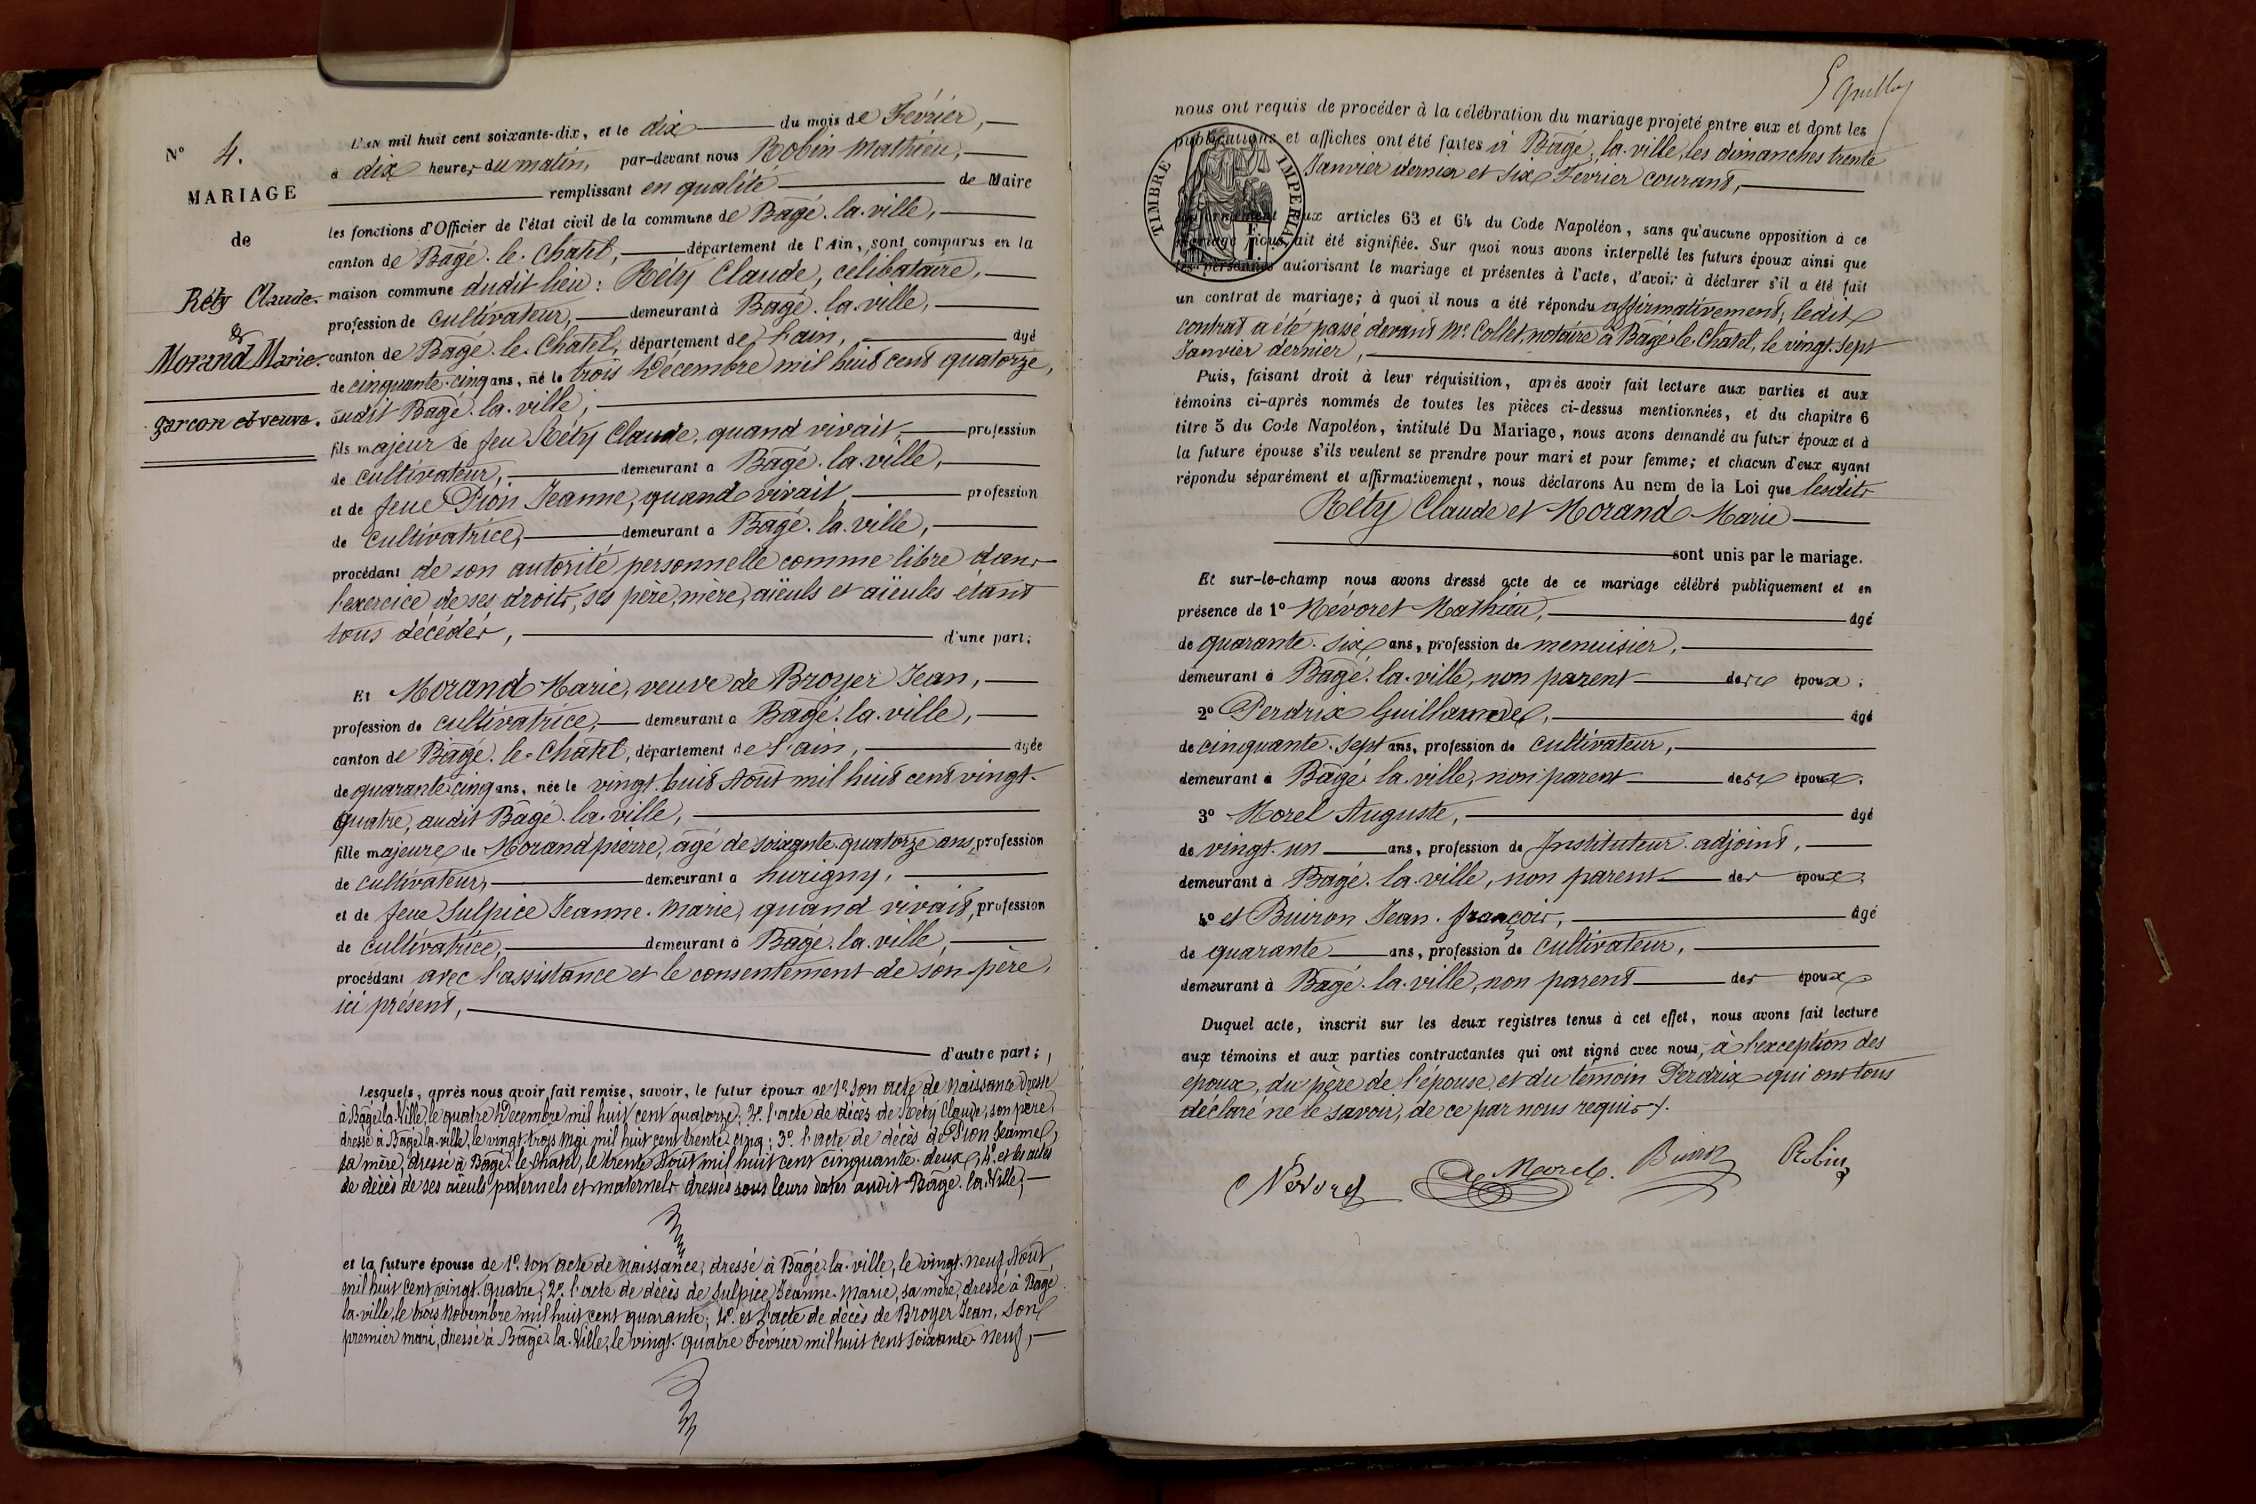 N° 4.
MARIAGE
de
Réty Claude.
&
Morand Marie.
garçon et veuve.
L'an mil huit cent soixante-dix, et le dix du mois de Février,
à dix heures du matin, par-devant nous Robin Mathieu,
remplissant en qualité de Maire
les fonctions d'Officier de l'état civil de la commune de Bâgé-la-ville,
canton de Bâgé-le-Chatel, département de l'Ain, sont comparus en la
maison commune dudit lieu : Réty Claude, célibataire,
profession de cultivateur, demeurant à Bâgé-la-ville,
canton de Bâgé-le-Chatel, département de l'ain, âgé
de cinquante-cinq ans, né le trois Décembre mil huit cent quatorze,
audit Bâgé-la-ville,
fils majeur de feu Réty Claude, quand vivait, profession
de cultivateur, demeurant à Bâgé-la-ville,
et de feue Pion Jeanne, quand vivait, profession
de cultivatrice, demeurant à Bâgé-la-ville,
procédant de son autorité personnelle comme libre dans
l'exercice de ses droits, ses père, mère, aïeuls et aïeules étant
tous décédés, d'une part;
Et Morand Marie, veuve de Broyer Jean,
profession de cultivatrice, demeurant à Bâgé-la-ville,
canton de Bâgé-le-Chatel, département de l'ain, âgée
de quarante-cinq ans, née le vingt-huit Août mil huit cent vingt-
quatre, audit Bâgé-la-ville,
fille majeure de Morand pierre, âgé de soixante-quatorze ans, profession
de cultivateur, demeurant à hurigny,
et de feue Sulpice Jeanne-Marie, quand vivait, profession
de cultivatrice, demeurant à Bâgé-la-ville,
procédant avec l'assistance et le consentement de son père,
ici présent,
d'autre part;
Lesquels, après nous avoir fait remise, savoir, le futur époux de 1° son acte de naissance dressé
à Bâgé-la-Ville, le quatre Décembre mil huit cent quatorze; 2° l'acte de décès de Réty Claude, son père,
dressé à Bâgé-la-ville, le vingt-trois Mai mil huit cent trente-cinq; 3° l'acte de décès de Pion Jeanne,
sa mère, dressé à Bâgé-le-Chatel, le trente Août mil huit cent cinquante-deux; 4° et les actes
de décès de ses aïeuls paternels et maternels dressés sous leurs dates audit Bâgé-la-Ville;
et la future épouse de 1° son acte de naissance, dressé à Bâgé-la-ville, le vingt-neuf Août
mil huit cent vingt-quatre; 2° l'acte de décès de Sulpice Jeanne-Marie, sa mère, dressé à Bâgé-
la-ville, le trois Novembre mil huit cent quarante; 4° et l'acte de décès de Broyer Jean, son
premier mari, dressé à Bâgé-la-Ville, le vingt-quatre Février mil huit cent soixante-neuf,
nous ont requis de procéder à la célébration du mariage projeté entre eux et dont les
publications et affiches ont été faites à Bâgé-la-ville, les dimanches trente
Janvier dernier et six Février courant,
TIMBRE IMPERIAL
conformément aux articles 63 et 64 du Code Napoléon, sans qu'aucune opposition à ce
mariage nous ait été signifiée. Sur quoi nous avons interpellé les futurs époux ainsi que
les personnes autorisant le mariage et présentes à l'acte, d'avoir à déclarer s'il a été fait
un contrat de mariage; à quoi il nous a été répondu affirmativement, ledit
contrat a été passé devant Me Collet, notaire à Bâgé-le-Chatel, le vingt-sept
Janvier dernier,
Puis, faisant droit à leur réquisition, après avoir fait lecture aux parties et aux
témoins ci-après nommés de toutes les pièces ci-dessus mentionnées, et du chapitre 6
titre 5 du Code Napoléon, intitulé Du Mariage, nous avons demandé au futur époux et à
la future épouse s'ils veulent se prendre pour mari et pour femme; et chacun d'eux ayant
répondu séparément et affirmativement, nous déclarons Au nom de la Loi que lesdits
Réty Claude et Morand Marie
sont unis par le mariage.
Et sur-le-champ nous avons dressé acte de ce mariage célébré publiquement et en
présence de 1° Névoret Mathieu, âgé
de quarante-six ans, profession de menuisier,
demeurant à Bâgé-la-ville, non parent des époux;
2° Perdrix Guillaume, âgé
de cinquante-sept ans, profession de cultivateur,
demeurant à Bâgé-la-ville, non parent des époux;
3° Morel Auguste, âgé
de vingt-un ans, profession de Instituteur-adjoint,
demeurant à Bâgé-la-ville, non parent des époux;
4° et Buiron Jean-françois, âgé
de quarante ans, profession de cultivateur,
demeurant à Bâgé-la-ville, non parent des époux
Duquel acte, inscrit sur les deux registres tenus à cet effet, nous avons fait lecture
aux témoins et aux parties contractantes qui ont signé avec nous, à l'exception des
époux, du père de l'épouse et du témoin Perdrix qui ont tous
déclaré ne le savoir, de ce par nous requis.
Névoret A Morel. Buiron Robin